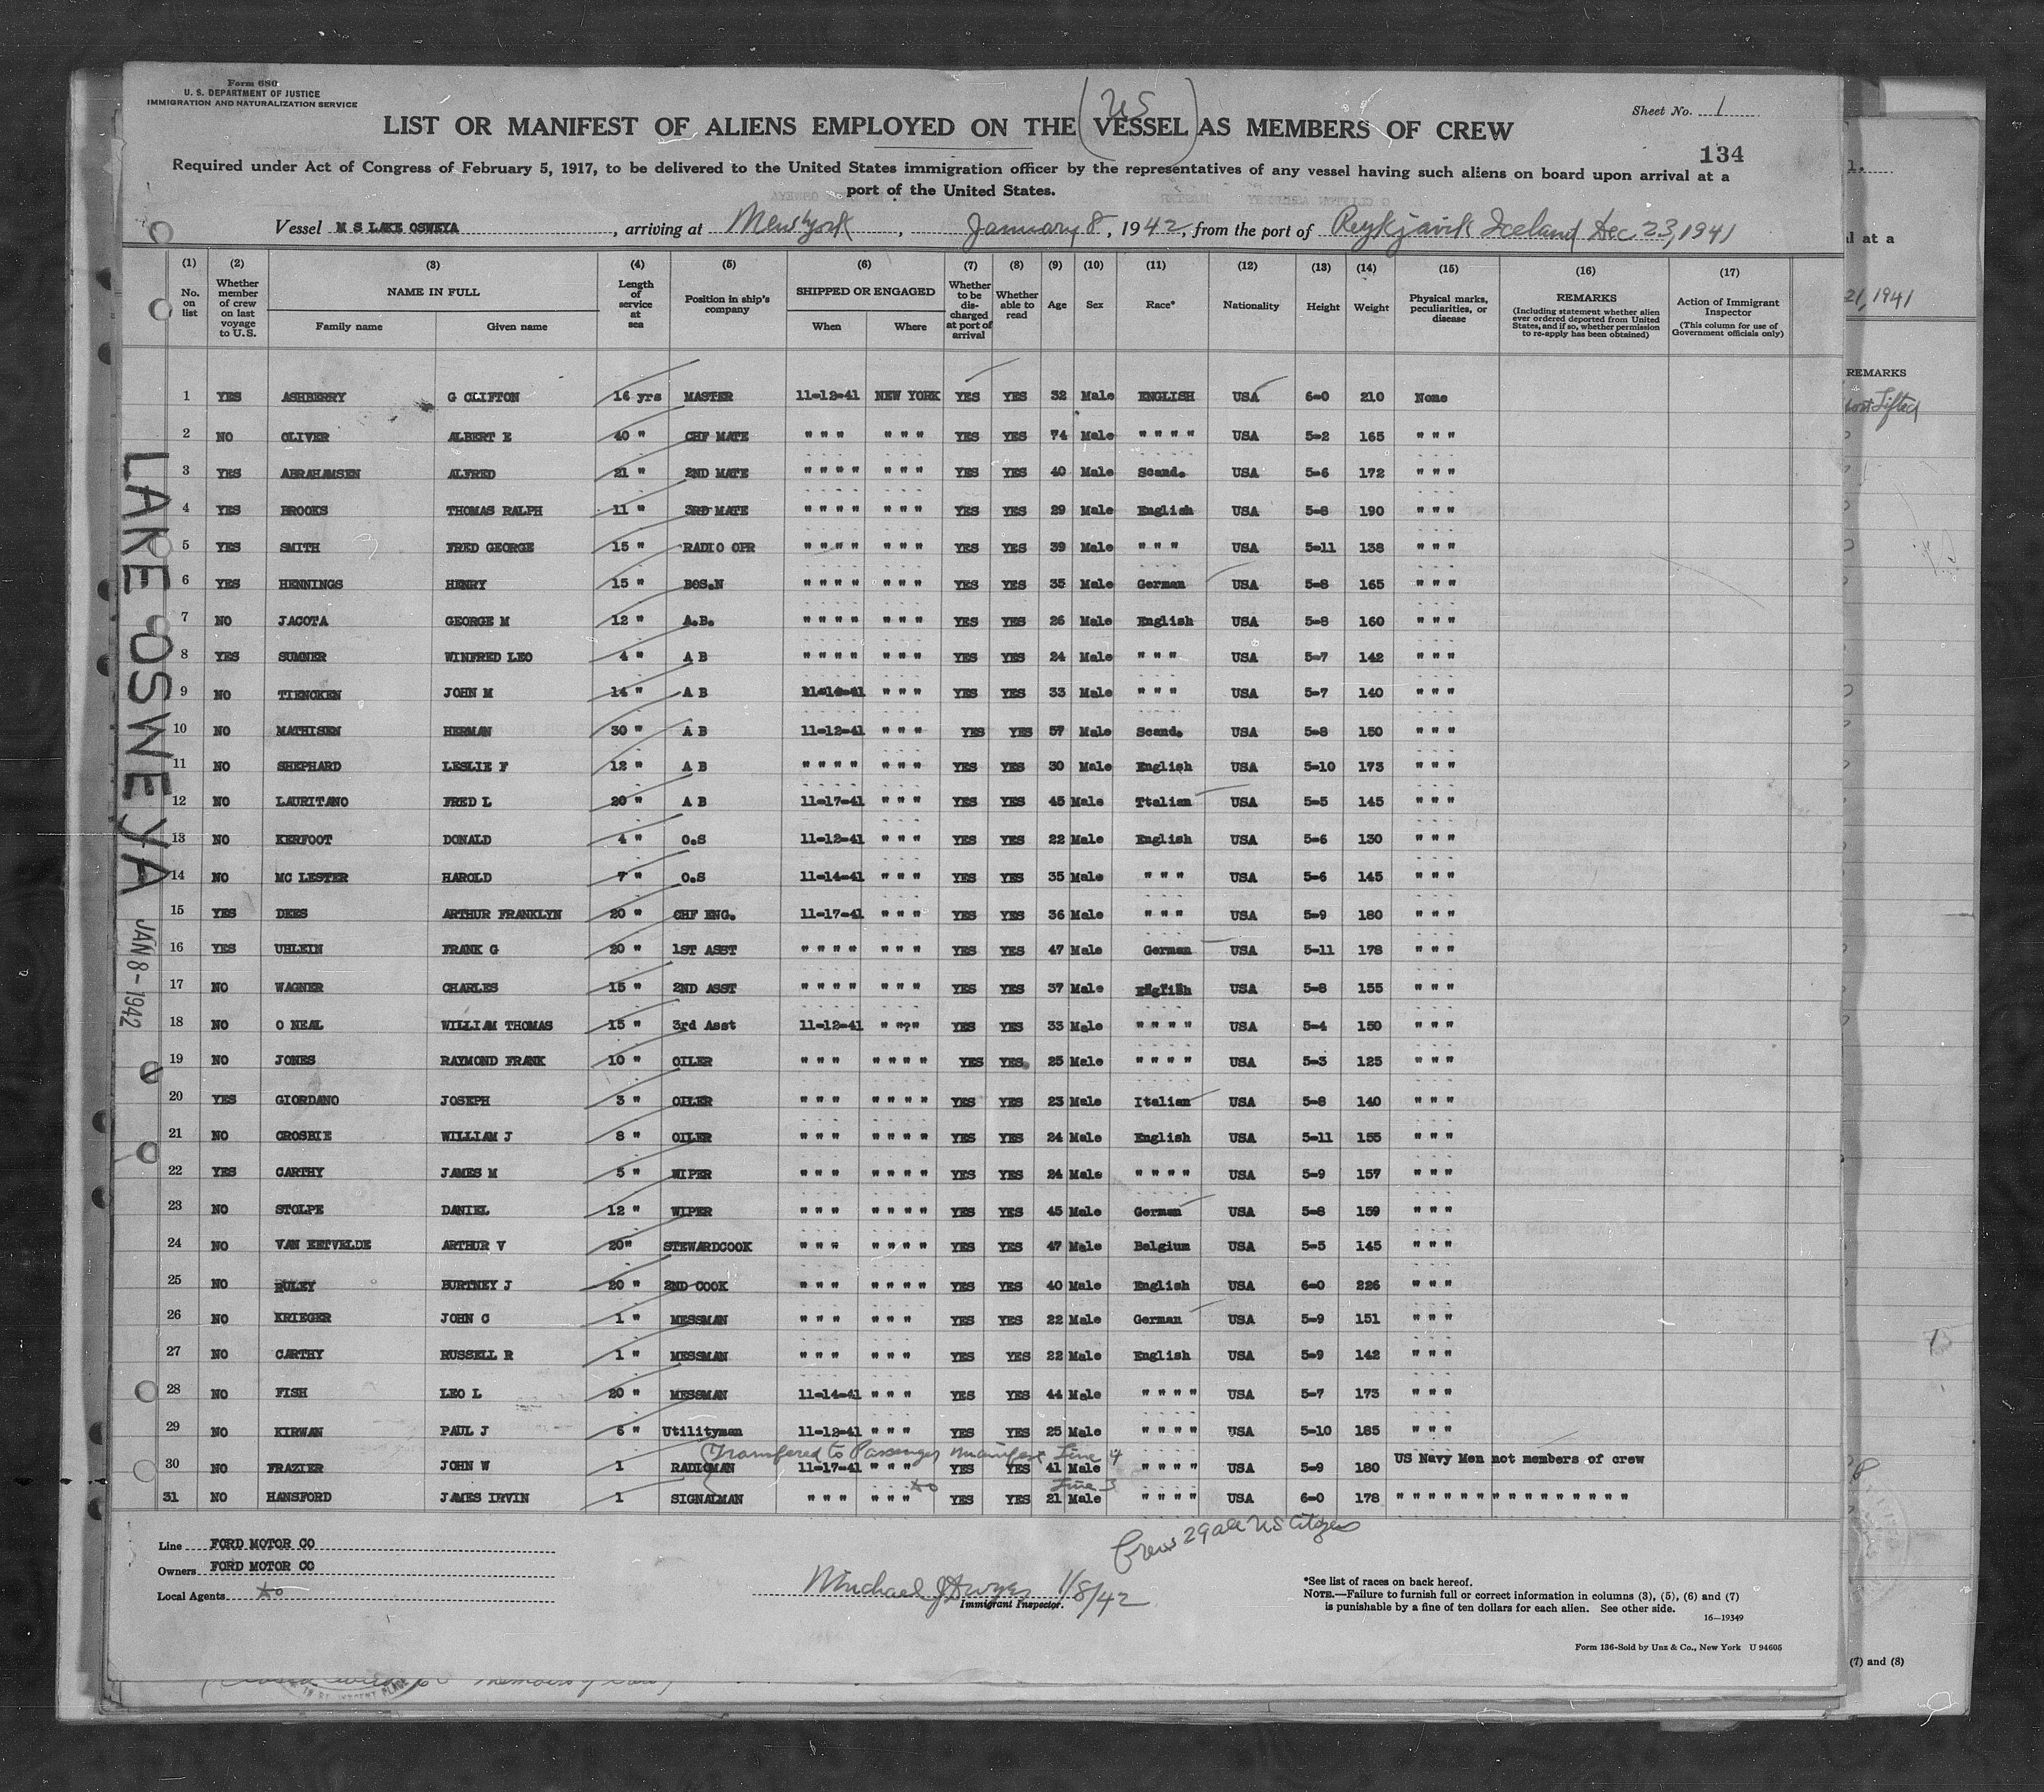 Form 680
U. S. DEPARTMENT OF JUSTICE
IMMIGRATION AND NATURALIZATION SERVICE
Sheet No. 1
(US)
LIST OR MANIFEST OF ALIENS EMPLOYED ON THE VESSEL AS MEMBERS OF CREW
134
Required under Act of Congress of February 5, 1917, to be delivered to the United States immigration officer by the representatives of any vessel having such aliens on board upon arrival at a
port of the United States.
Vessel M S LAKE OSWEYA, arriving at New York, January 8, 1942, from the port of Reykjavik Iceland Dec 23, 1941
(1) (2) (3) (4) (5) (6) (7) (8) (9) (10) (11) (12) (13) (14) (15) (16) (17)
No. on list
Whether member of crew on last voyage to U.S.
NAME IN FULL
Family name Given name
Length of service at sea
Position in ship's company
SHIPPED OR ENGAGED
When Where
Whether to be discharged at port of arrival
Whether able to read
Age
Sex
Race*
Nationality
Height
Weight
Physical marks, peculiarities, or disease
REMARKS
(Including statement whether alien ever ordered deported from United States, and if so, whether permission to re-apply has been obtained)
Action of Immigrant Inspector
(This column for use of Government officials only)
1 YES ASHBERRY G CLIFTON 16 yrs MASTER 11-12-41 NEW YORK YES YES 32 Male ENGLISH USA 6-0 210 None
2 NO OLIVER ALBERT E 40 " CHF MATE " " " " " " YES YES 74 Male " " " " USA 5-2 165 " " "
3 YES ABRAHAMSEN ALFRED 21 " 2ND MATE " " " " " " " YES YES 40 Male Scand. USA 5-6 172 " " "
4 YES BROOKS THOMAS RALPH 11 " 3RD MATE " " " " " " " YES YES 29 Male English USA 5-8 190 " " "
5 YES SMITH FRED GEORGE 15 " RADIO OPR " " " " " " " YES YES 39 Male " " " USA 5-11 138 " " "
6 YES HENNINGS HENRY 15 " BOS.N " " " " " " " YES YES 35 Male German USA 5-8 165 " " "
7 NO JACOTA GEORGE M 12 " A.B. " " " " " " " YES YES 26 Male English USA 5-8 160 " " "
8 YES SUMNER WINFRED LEO 4 " A B " " " " " " " YES YES 24 Male " " " USA 5-7 142 " " "
9 NO TIENCKEN JOHN M 14 " A B 11-14-41 " " " YES YES 33 Male " " " USA 5-7 140 " " "
10 NO MATHISEN HERMAN 30 " A B 11-12-41 " " " YES YES 57 Male Scand. USA 5-8 150 " " "
11 NO SHEPHARD LESLIE F 12 " A B " " " " " " " YES YES 30 Male English USA 5-10 173 " " "
12 NO LAURITANO FRED L 20 " A B 11-17-41 " " " YES YES 45 Male Ttalian USA 5-5 145 " " "
13 NO KERFOOT DONALD 4 " O.S 11-12-41 " " " YES YES 22 Male English USA 5-6 130 " " "
14 NO MC LESTER HAROLD 7 " O.S 11-14-41 " " " YES YES 35 Male " " " USA 5-6 145 " " "
15 YES DEES ARTHUR FRANKLYN 20 " CHF ENG. 11-17-41 " " " YES YES 36 Male " " " USA 5-9 180 " " "
16 YES UHLEIN FRANK G 20 " 1ST ASST " " " " " " " YES YES 47 Male German USA 5-11 178 " " "
17 NO WAGNER CHARLES 15 " 2ND ASST " " " " " " " YES YES 37 Male English USA 5-8 155 " " "
18 NO O NEAL WILLIAM THOMAS 15 " 3rd Asst 11-12-41 " "?" YES YES 33 Male " " " " USA 5-4 150 " " "
19 NO JONES RAYMOND FRANK 10 " OILER " " " " " " " YES YES 25 Male " " " " USA 5-3 125 " " "
20 YES GIORDANO JOSEPH 3 " OILER " " " " " " " YES YES 23 Male Italian USA 5-8 140 " " "
21 NO CROSBIE WILLIAM J 8 " OILER " " " " " " " YES YES 24 Male English USA 5-11 155 " " "
22 YES CARTHY JAMES M 5 " WIPER " " " " " " " YES YES 24 Male " " " " USA 5-9 157 " " "
23 NO STOLPE DANIEL 12 " WIPER " " " " " " " YES YES 45 Male German USA 5-8 159 " " "
24 NO VAN EETVELDE ARTHUR V 20" STEWARDCOOK " " " " " " " YES YES 47 Male Belgium USA 5-5 145 " " "
25 NO RULEY HURTNEY J 20 " 2ND COOK " " " " " " " YES YES 40 Male English USA 6-0 226 " " "
26 NO KRIEGER JOHN C 1 " MESSMAN " " " " " " YES YES 22 Male German USA 5-9 151 " " "
27 NO CARTHY RUSSELL R 1 " MESSMAN " " " " " " YES YES 22 Male English USA 5-9 142 " " "
28 NO FISH LEO L 20 " MESSMAN 11-14-41 " " " YES YES 44 Male " " " " USA 5-7 173 " " "
29 NO KIRWAN PAUL J 6 " Utilityman 11-12-41 " " " YES YES 25 Male " " " " USA 5-10 185 " " "
(Transfered to Passenger manifest Line 4
30 NO FRAZIER JOHN W 1 RADIOMAN 11-17-41 " " " YES YES 41 Male " " " " USA 5-9 180 US Navy Men not members of crew
do Line 3
31 NO HANSFORD JAMES IRVIN 1 SIGNALMAN " " " " " " YES YES 21 Male " " " " USA 6-0 178 " " " " " " " " " " " " " " "
Crew 29 all US Citizens
Line FORD MOTOR CO
Owners FORD MOTOR CO
Local Agents do
Michael J Dwyer 1/8/42
Immigrant Inspector.
*See list of races on back hereof.
NOTE.—Failure to furnish full or correct information in columns (3), (5), (6) and (7)
is punishable by a fine of ten dollars for each alien. See other side.
16—19349
Form 136-Sold by Unz & Co., New York U 94605
LAKE OSWEYA JAN 8-1942
l at a
21, 1941
REMARKS
Lifted
(7) and (8)